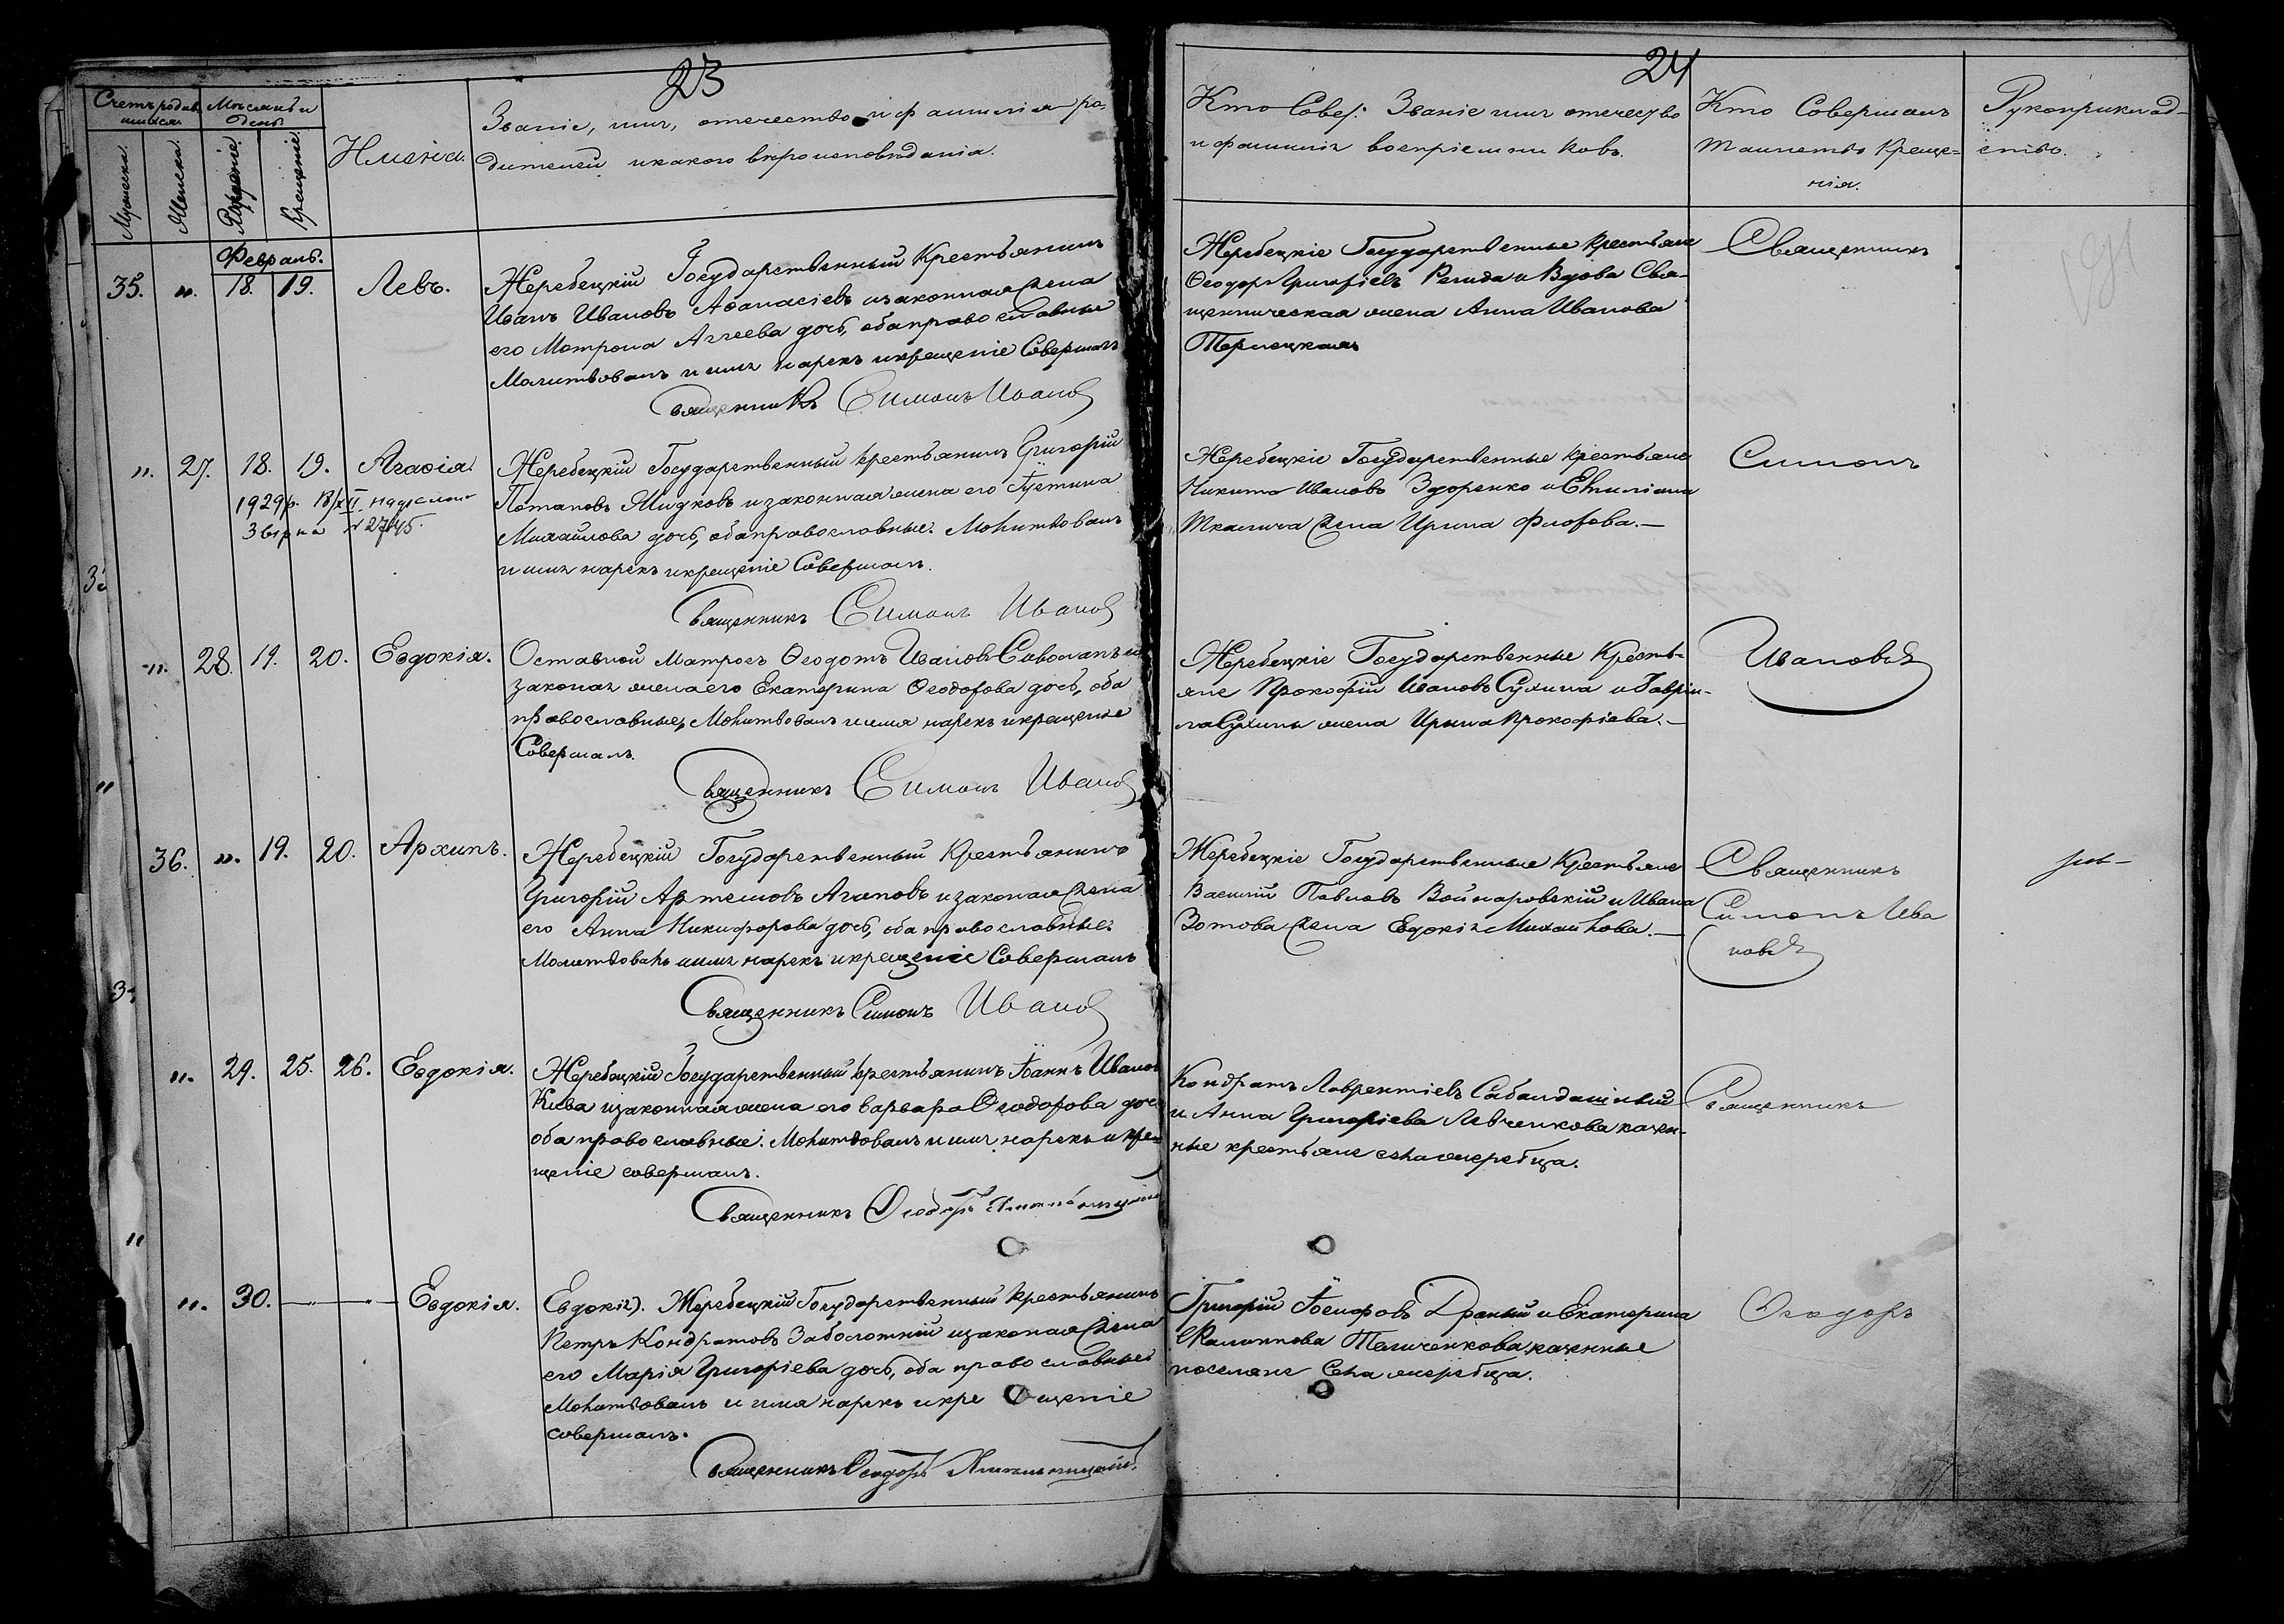 23
Счетъ родив-
шихся
Мѣсяцъ и
день
Мужеска.
Женска.
Рожденіе.
Крещеніе.
Имена.
Званіе, имя, отечество и фамилія ро-
дителей и какого вѣроисповѣданія.
Февраль.
35. „. 18. 19. Левъ.
Жеребецкій Государственный Крестьянинъ
Иванъ Ивановъ Аѳанасіевъ и законная жена
его Матрона Аггеева дочь, оба православные
Молитвовалъ и имя нарекъ и крещеніе Совершалъ
Священникъ Симонъ Иванов
„. 27. 18. 19. Агаѳія.
1929р. 18/XII надіслано
Звірка № 2745.
Жеребецкій Государственный крестьянинъ Григорій
Потаповъ Жидковъ и законная жена его Іустина
Михайлова дочь, оба православные. Молитвовалъ
и имя нарекъ и крещеніе Совершалъ.
Священникъ Симонъ Иванов
„. 28. 19. 20. Евдокія.
Оставной Матросъ Ѳеодотъ Ивановъ и
законая жена его Екатерина Ѳеодорова дочь, оба
православные, Молитвовалъ и имя нарекъ и крещенье
Совершалъ.
Священникъ Симонъ Иванов
36. „. 19. 20. Архипъ.
Жеребецкій Государственный Крестьянинъ
Григорій Артемовъ Агаповъ и законая жена
его Анна Никифорова дочь, оба православные.
Молитвовалъ и имя нарекъ и крещеніе Совершалъ
Священникъ Симонъ Иванов
„. 29. 25. 26. Евдокія.
Жеребецкій Государственный крестьянинъ Іоаннъ Иванов
и законная жена его Варвара Ѳеодорова доч
оба православные. Молитвовалъ и имя нарекъ и кре=
щеніе совершалъ.
Священникъ Ѳеодоръ
„. 30. — — Евдокія.
Евдокія). Жеребецкій Государственный крестьянинъ
Петръ Кондратовъ Заболотній и законая жена
его Марія Григоріева дочь, оба православные
Молитвовалъ и имя нарекъ и кре щеніе
совершалъ.
Священникъ Ѳеодоръ
24
Кто Совер: Званіе имя отечество
и фамилія воспріемниковъ.
Кто Совершалъ
Таинство Креще=
нія.
Рукоприклад-
ство.
Жеребецкіе Государственные крестьяне
Ѳеодоръ Григоріевъ и Вдова Свя-
щенническая жена Анна Иванова
Терлецкая
Священникъ
Жеребецкіе Государственные крестьяне
Никита Ивановъ Здоренко и Емиліана
Ткалича жена Ирина Фнорова.—
Симонъ
Жеребецкіе Государственные Кресть-
яне Прокофій Ивановъ Сухина и Гаври-
ла Сухины жена Ирина Прокофіева.—
Ивановъ
Жеребецкіе Государственные Крестьяне
Василій Павловъ Войнаровскій и Ивана
Зотова жена Евдокія Михайлова.—
Священникъ
Симонъ Ива
новъ
Кондратъ Лаврентіевъ
и Анна Григоріева Левченкова казен-
ные крестьяне села жеребца.
Священникъ
Григорій Іосифовъ Драный и Екатерина
Теличенкова казенные
поселяне Села жеребца.
Ѳеодоръ